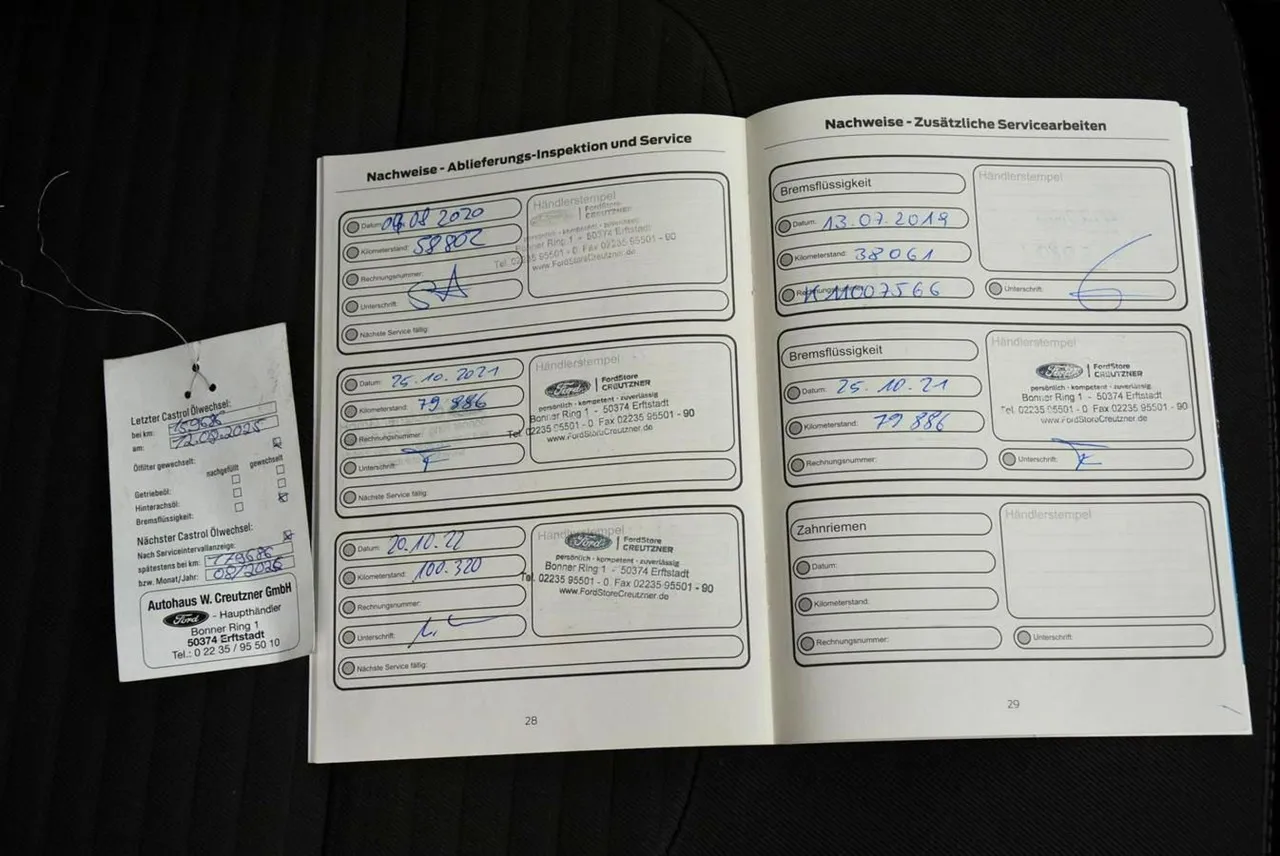 Letzter Castrol Ölwechsel:
bei km: 159686
am: 12.08.2025
Ölfilter gewechselt:
nachgefüllt gewechselt
Getriebeöl:
Hinterachsöl:
Bremsflüssigkeit:
Nächster Castrol Ölwechsel:
Nach Serviceintervallanzeige:
spätestens bei km: 179686
bzw. Monat/Jahr: 08/2026
Autohaus W. Creutzner GmbH
Ford - Haupthändler
Bonner Ring 1
50374 Erftstadt
Tel.: 0 22 35 / 95 50 10
Nachweise - Ablieferungs-Inspektion und Service
Datum: 04.08 2020
Kilometerstand: 58802
Rechnungsnummer:
Unterschrift:
Nächste Service fällig:
Händlerstempel
FordStore
CREUTZNER
persönlich - kompetent - zuverlässig
Bonner Ring 1 - 50374 Erftstadt
Tel. 02235 95501 - 0 Fax 02235 95501 - 90
www.FordStoreCreutzner.de
Datum: 25.10.2021
Kilometerstand: 79 886
Rechnungsnummer:
Unterschrift:
Nächste Service fällig:
Händlerstempel
Ford FordStore
CREUTZNER
persönlich - kompetent - zuverlässig
Bonner Ring 1 - 50374 Erftstadt
Tel. 02235 95501 - 0 Fax 02235 95501 - 90
www.FordStoreCreutzner.de
Datum: 20.10.22
Kilometerstand: 100.320
Rechnungsnummer:
Unterschrift:
Nächste Service fällig:
Händlerstempel
Ford FordStore
CREUTZNER
persönlich - kompetent - zuverlässig
Bonner Ring 1 - 50374 Erftstadt
Tel. 02235 95501 - 0 Fax 02235 95501 - 90
www.FordStoreCreutzner.de
28
Nachweise - Zusätzliche Servicearbeiten
Bremsflüssigkeit
Datum: 13.07.2019
Kilometerstand: 38061
Rechnungsnummer:
Händlerstempel
Unterschrift:
Bremsflüssigkeit
Datum: 25.10.21
Kilometerstand: 79 886
Rechnungsnummer:
Händlerstempel
Ford FordStore
CREUTZNER
persönlich - kompetent - zuverlässig
Bonner Ring 1 - 50374 Erftstadt
Tel. 02235 95501 - 0 Fax 02235 95501 - 90
www.FordStoreCreutzner.de
Unterschrift:
Zahnriemen
Datum:
Kilometerstand:
Rechnungsnummer:
Händlerstempel
Unterschrift:
29